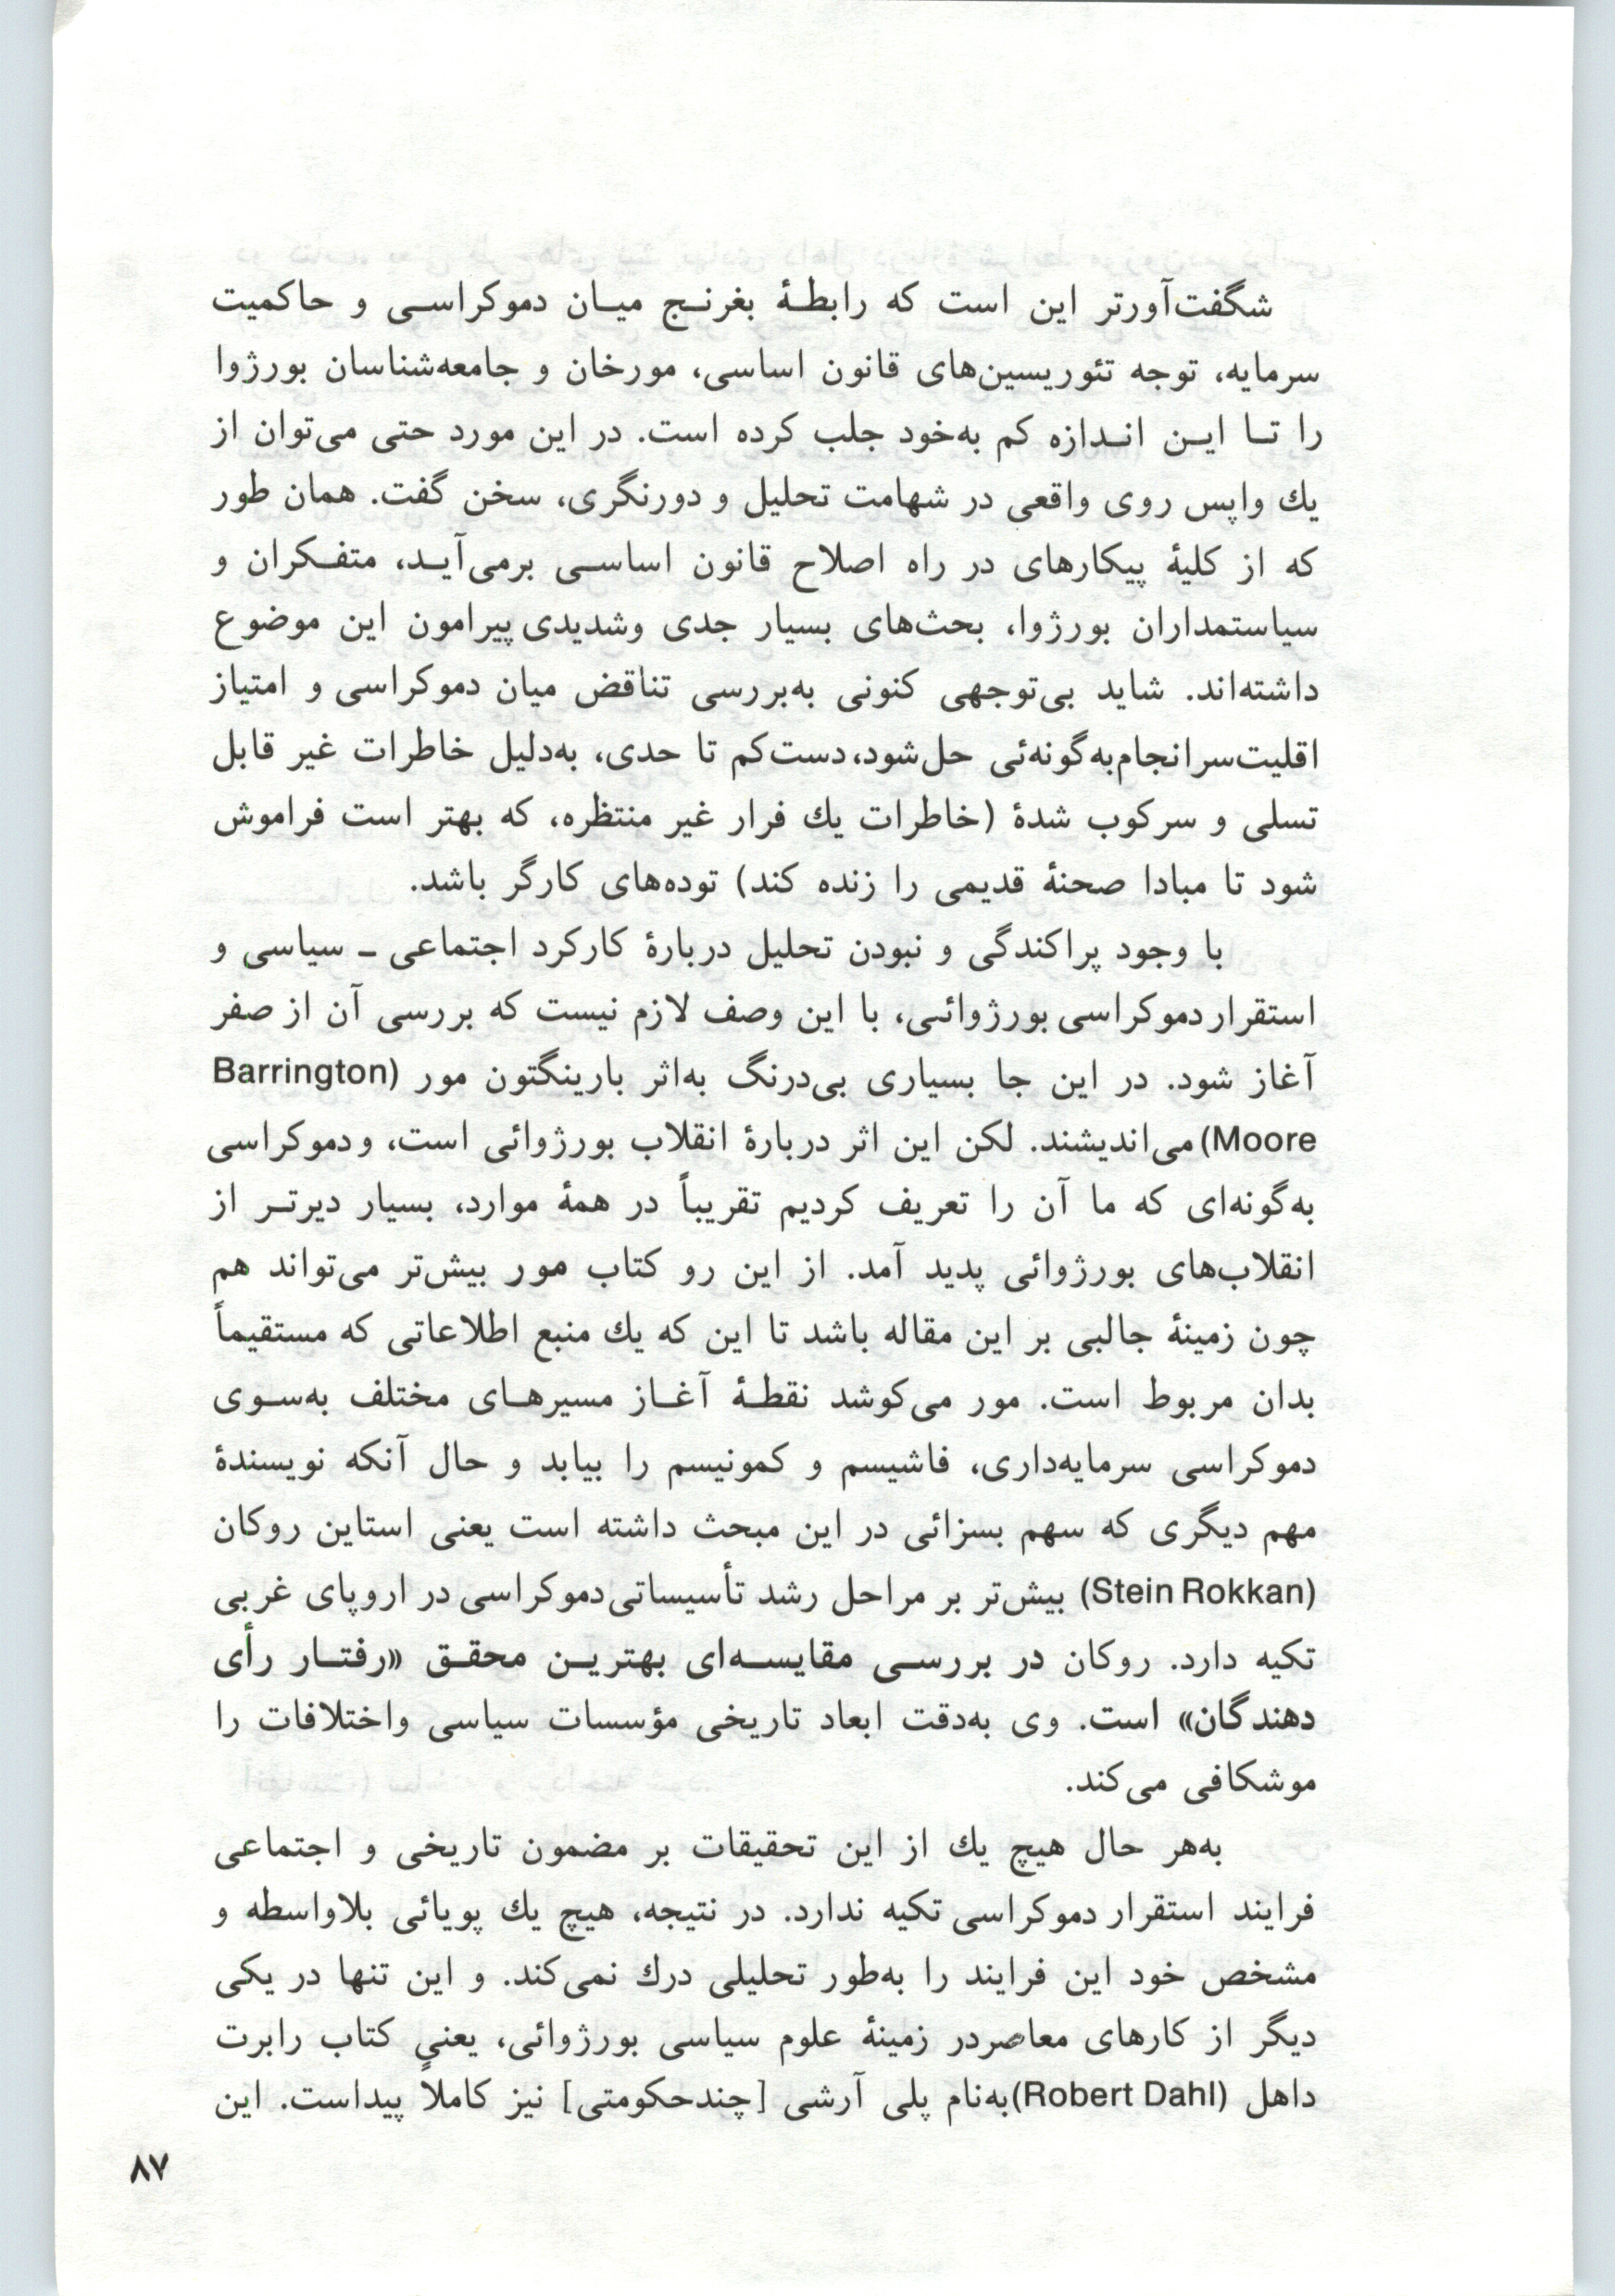 شگفت‌آورتر این است که رابطهٔ بغرنج میان دموکراسی و حاکمیت
سرمایه، توجه تئوریسین‌های قانون اساسی، مورخان و جامعه‌شناسان بورژوا
را تا این اندازه کم به‌خود جلب کرده است. در این مورد حتی می‌توان از
یك واپس روی واقعی در شهامت تحلیل و دورنگری، سخن گفت. همان طور
که از کلیهٔ پیکارهای در راه اصلاح قانون اساسی برمی‌آید، متفکران و
سیاستمداران بورژوا، بحث‌های بسیار جدی وشدیدی پیرامون این موضوع
داشته‌اند. شاید بی‌توجهی کنونی به‌بررسی تناقض میان دموکراسی و امتیاز
اقلیت‌سرانجام‌به‌گونه‌ئی حل‌شود، دست‌کم تا حدی، به‌دلیل خاطرات غیر قابل
تسلی و سرکوب شدهٔ (خاطرات یك فرار غیر منتظره، که بهتر است فراموش
شود تا مبادا صحنهٔ قدیمی را زنده کند) توده‌های کارگر باشد.
با وجود پراکندگی و نبودن تحلیل دربارهٔ کارکرد اجتماعی ـ سیاسی و
استقرار دموکراسی بورژوائی، با این وصف لازم نیست که بررسی آن از صفر
آغاز شود. در این جا بسیاری بی‌درنگ به‌اثر بارینگتون مور (Barrington
Moore) می‌اندیشند. لکن این اثر دربارهٔ انقلاب بورژوائی است، و دموکراسی
به‌گونه‌ای که ما آن را تعریف کردیم تقریباً در همهٔ موارد، بسیار دیرتر از
انقلاب‌های بورژوائی پدید آمد. از این رو کتاب مور بیش‌تر می‌تواند هم
چون زمینهٔ جالبی بر این مقاله باشد تا این که یك منبع اطلاعاتی که مستقیماً
بدان مربوط است. مور می‌کوشد نقطهٔ آغاز مسیرهای مختلف به‌سوی
دموکراسی سرمایه‌داری، فاشیسم و کمونیسم را بیابد و حال آنکه نویسندهٔ
مهم دیگری که سهم بسزائی در این مبحث داشته است یعنی استاین روکان
(Stein Rokkan) بیش‌تر بر مراحل رشد تأسیساتی دموکراسی در اروپای غربی
تکیه دارد. روکان در بررسی مقایسه‌ای بهترین محقق «رفتار رأی
دهندگان» است. وی به‌دقت ابعاد تاریخی مؤسسات سیاسی واختلافات را
موشکافی می‌کند.
به‌هر حال هیچ یك از این تحقیقات بر مضمون تاریخی و اجتماعی
فرایند استقرار دموکراسی تکیه ندارد. در نتیجه، هیچ یك پویائی بلاواسطه و
مشخص خود این فرایند را به‌طور تحلیلی درك نمی‌کند. و این تنها در یکی
دیگر از کارهای معاصردر زمینهٔ علوم سیاسی بورژوائی، یعنی کتاب رابرت
داهل (Robert Dahl) به‌نام پلی آرشی [چندحکومتی] نیز کاملاً پیداست. این
۸۷